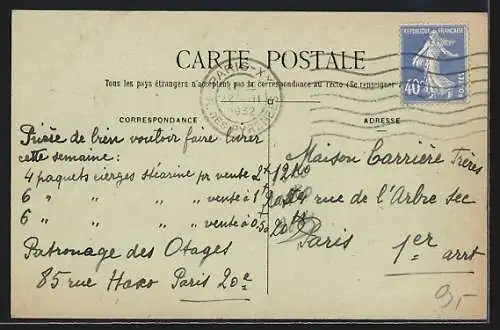 CARTE POSTALE
Tous les pays étrangers n'acceptent pas la correspondance au recto (Se renseigner
RÉPUBLIQUE FRANÇAISE
40c
POSTES
PARIS-XX
1932
CORRESPONDANCE
ADRESSE
Prière de bien vouloir faire livrer
cette semaine :
4 paquets cierges stéarine pr vente 2f
6 " " " vente à 1f
6 " " " vente à 0f50
Patronage des Otages
85 rue Haxo Paris 20e
Maison Carrière Frères
rue de l'Arbre sec
Paris 1er arrt